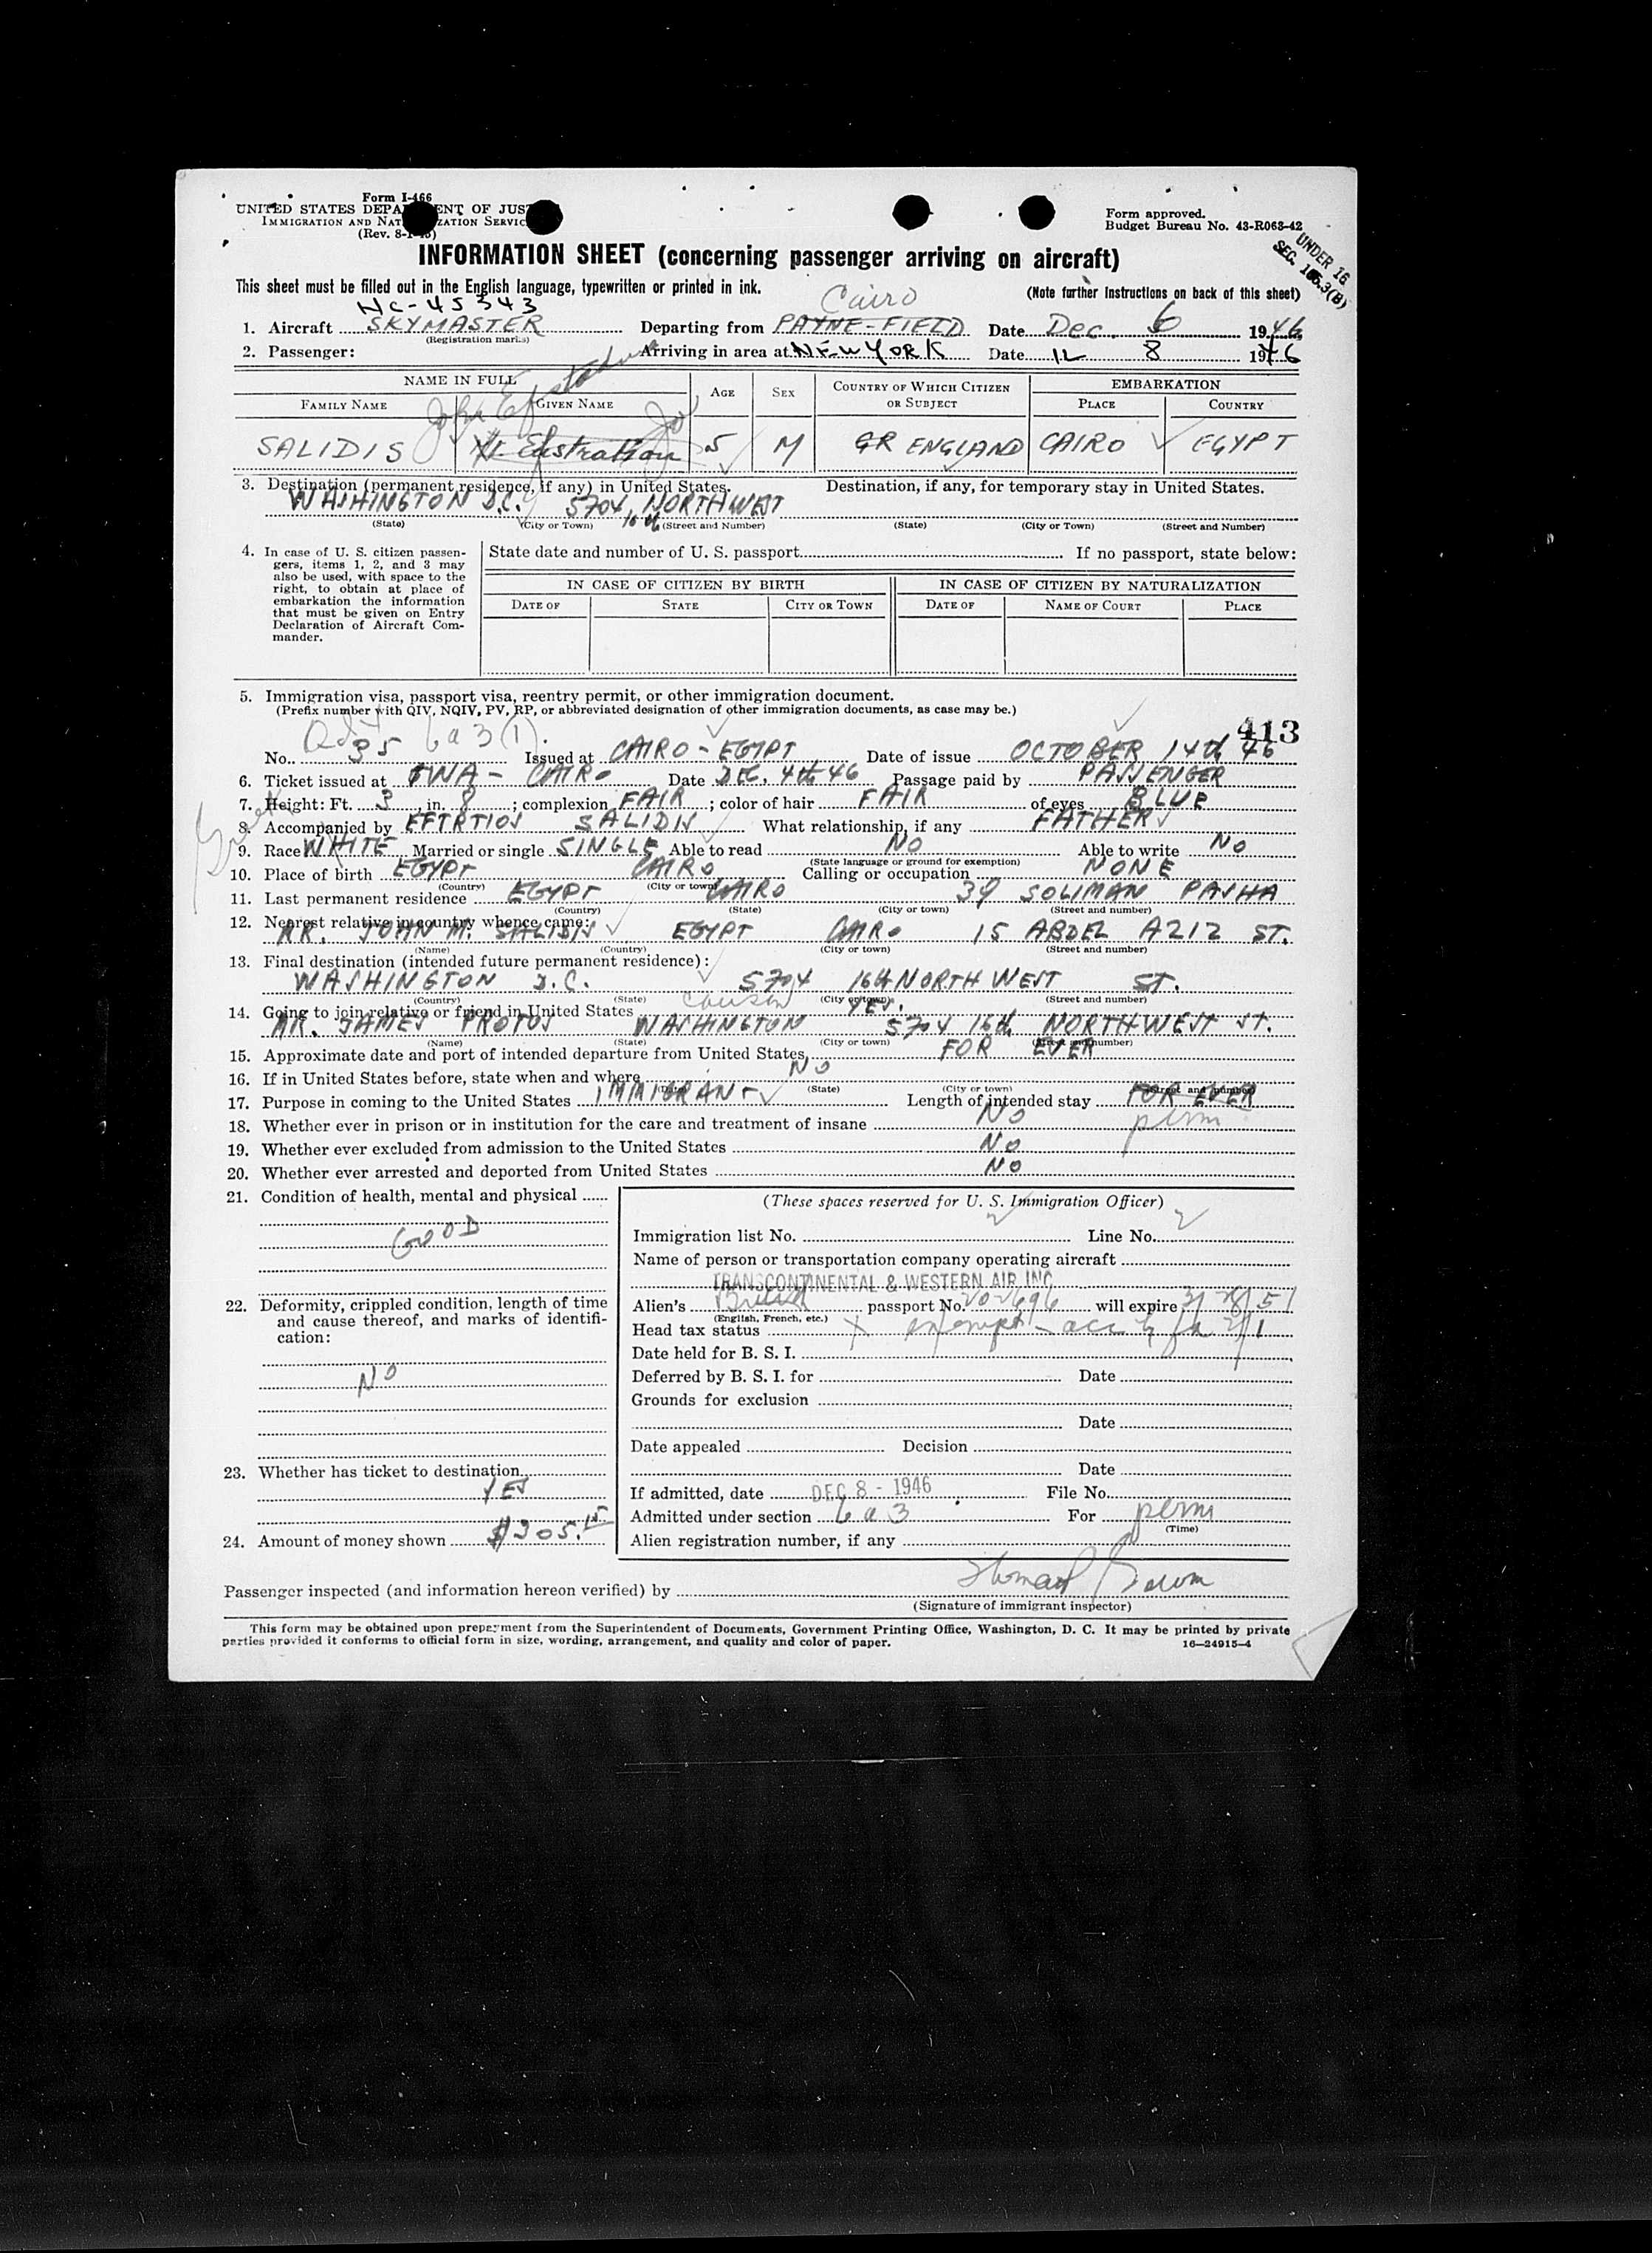 Form I-466
UNITED STATES DEPA ENT OF JUS
IMMIGRATION AND NAT ZATION SERVIC
(Rev. 8-1- )
Form approved.
Budget Bureau No. 43-R063-42
UNDER 16
SEC. 3(B)
INFORMATION SHEET (concerning passenger arriving on aircraft)
This sheet must be filled out in the English language, typewritten or printed in ink.
(Note further instructions on back of this sheet)
NC-45343 Cairo
1. Aircraft SKYMASTER Departing from PAYNE-FIELD Date Dec. 6 1946
(Registration marks)
2. Passenger: Arriving in area at NEW YORK Date 12 8 1946
NAME IN FULL AGE SEX COUNTRY OF WHICH CITIZEN OR SUBJECT EMBARKATION
FAMILY NAME GIVEN NAME PLACE COUNTRY
John
SALIDIS 5 M GR ENGLAND CAIRO EGYPT
3. Destination (permanent residence, if any) in United States. Destination, if any, for temporary stay in United States.
WASHINGTON D.C. 5704, 16th NORTHWEST
(State) (City or Town) (Street and Number) (State) (City or Town) (Street and Number)
4. In case of U. S. citizen passengers, items 1, 2, and 3 may also be used, with space to the right, to obtain at place of embarkation the information that must be given on Entry Declaration of Aircraft Commander.
State date and number of U. S. passport If no passport, state below:
IN CASE OF CITIZEN BY BIRTH IN CASE OF CITIZEN BY NATURALIZATION
DATE OF STATE CITY OR TOWN DATE OF NAME OF COURT PLACE
5. Immigration visa, passport visa, reentry permit, or other immigration document.
(Prefix number with QIV, NQIV, PV, RP, or abbreviated designation of other immigration documents, as case may be.)
413
6a3(1).
No. 35 Issued at CAIRO - EGYPT Date of issue OCTOBER 14th 46
6. Ticket issued at TWA - CAIRO Date DEC. 4th 46 Passage paid by PASSENGER
7. Height: Ft. 3, in. 8; complexion FAIR; color of hair FAIR of eyes BLUE
8. Accompanied by EFTRTIOS SALIDIS What relationship, if any FATHER
Greek
9. Race WHITE Married or single SINGLE Able to read NO Able to write NO
(State language or ground for exemption)
10. Place of birth EGYPT CAIRO Calling or occupation NONE
(Country) (City or town)
11. Last permanent residence EGYPT CAIRO 39 SOLIMAN PASHA
(Country) (State) (City or town) (Street and number)
12. Nearest relative in country whence came:
MR. JOHN M. SALIDIS EGYPT CAIRO 15 ABDEL AZIZ ST.
(Name) (Country) (City or town) (Street and number)
13. Final destination (intended future permanent residence):
WASHINGTON D.C. 5704 16th NORTH WEST ST.
(Country) (State) (City or town) (Street and number)
14. Going to join relative or friend in United States cousin YES.
MR. JAMES PROTOS WASHINGTON 5704 16th NORTHWEST ST.
(Name) (State) (City or town) (Street and number)
15. Approximate date and port of intended departure from United States FOR EVER
16. If in United States before, state when and where NO
(Date) (State) (City or town) (Street and number)
17. Purpose in coming to the United States IMMIGRANT Length of intended stay FOR EVER
perm
18. Whether ever in prison or in institution for the care and treatment of insane NO
19. Whether ever excluded from admission to the United States NO
20. Whether ever arrested and deported from United States NO
21. Condition of health, mental and physical
GOOD
22. Deformity, crippled condition, length of time and cause thereof, and marks of identification:
NO
23. Whether has ticket to destination
YES
24. Amount of money shown $305.15
(These spaces reserved for U. S. Immigration Officer)
Immigration list No. 2 Line No. 2
Name of person or transportation company operating aircraft
TRANSCONTINENTAL & WESTERN AIR INC
Alien's British passport No. 202696 will expire 3/28/51
(English, French, etc.)
Head tax status exempt - acc
Date held for B. S. I.
Deferred by B. S. I. for Date
Grounds for exclusion
Date
Date appealed Decision
Date
If admitted, date DEC 8 - 1946 File No.
Admitted under section 6a3 For perm
(Time)
Alien registration number, if any
Passenger inspected (and information hereon verified) by
(Signature of immigrant inspector)
This form may be obtained upon prepayment from the Superintendent of Documents, Government Printing Office, Washington, D. C. It may be printed by private
parties provided it conforms to official form in size, wording, arrangement, and quality and color of paper. 16—24915-4